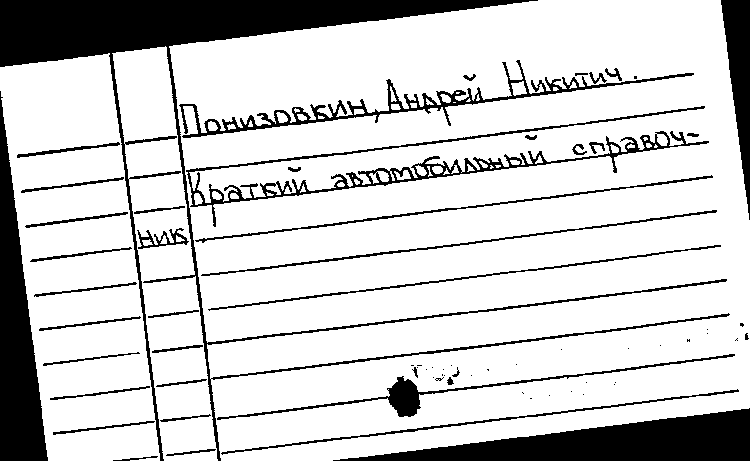 Понизовкин, Андрей Никитич.
Краткий автомобильный справоч-
ник.